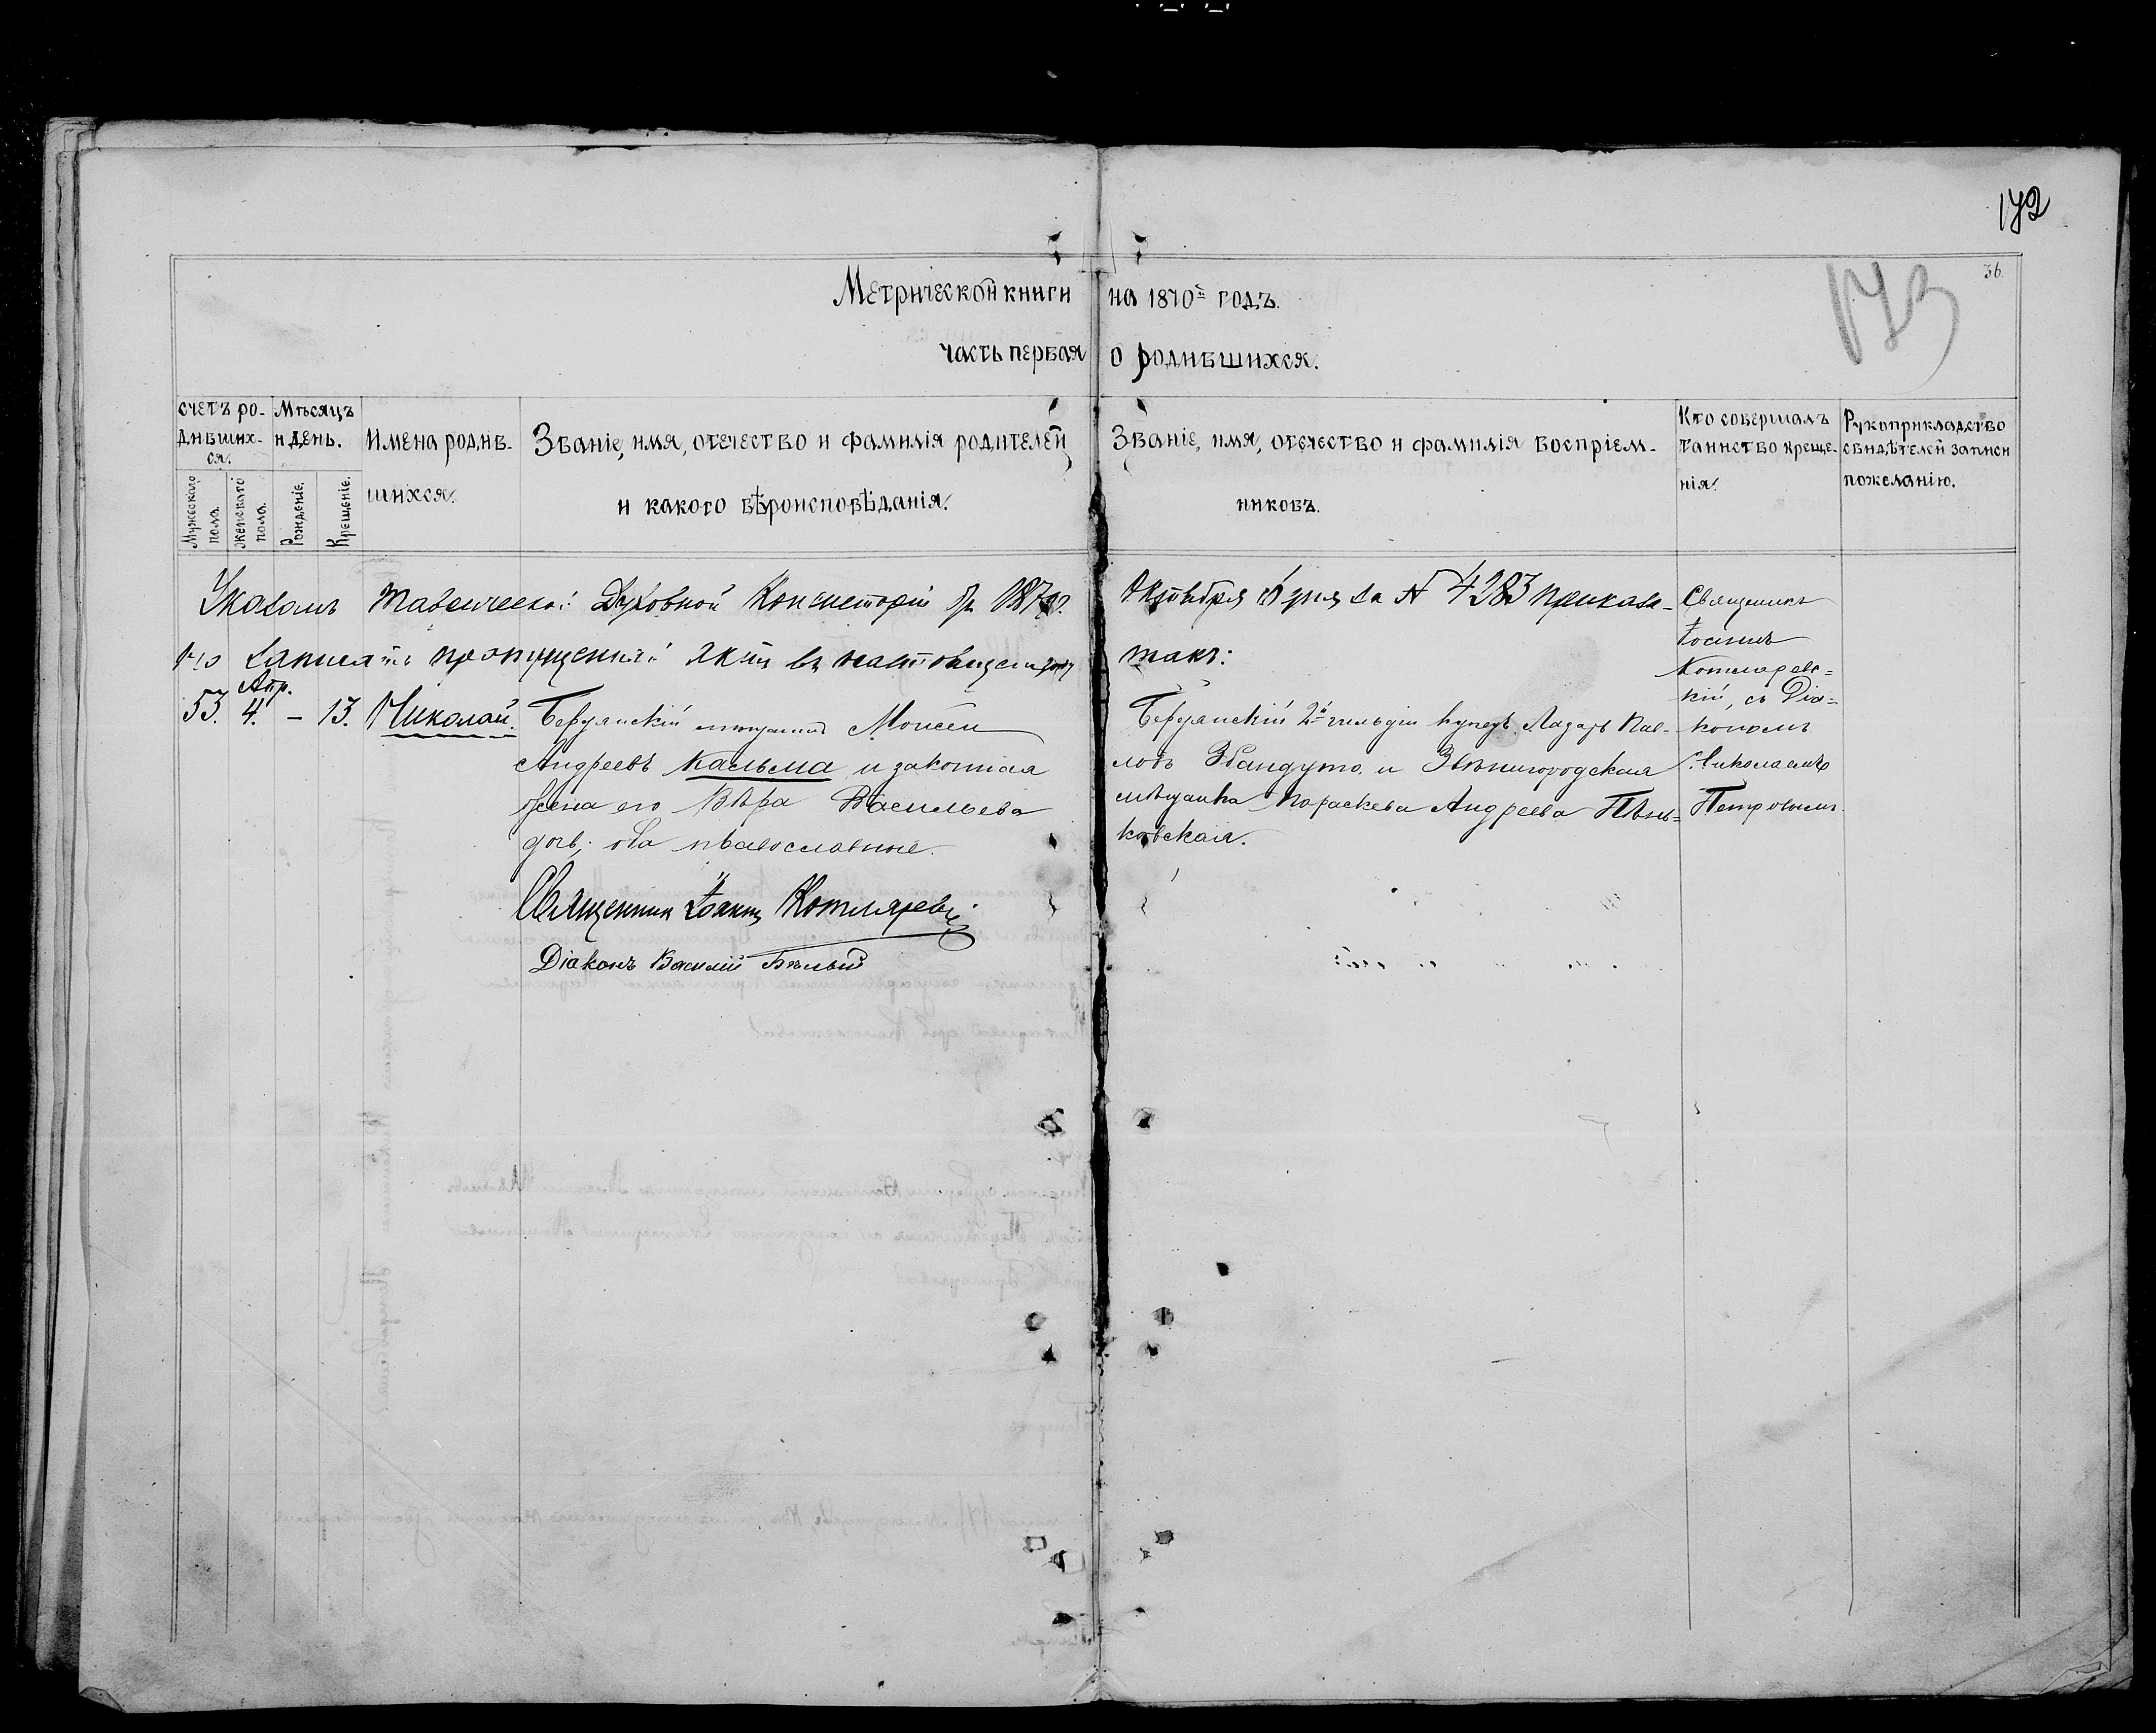 172
173
36.
Метрической книги на 1870й годъ.
часть первая о родившихся.
счетъ ро-
дивших-
ся.
Мужескаго пола.
Женскаго пола.
Мѣсяцъ
и день.
Рожденіе.
Крещеніе.
Имена родив-
шихся.
Званіе, имя, отечество и фамилія родителей
и какого вѣроисповѣданія.
Званіе, имя, отечество и фамилія воспріем-
никовъ.
Кто совершалъ
таинство креще-
нія.
Рукоприкладство
свидѣтелей записи
пожеланію.
Указомъ Таврической Духовной Консисторіи 1870 Октября дня за № 4283 приказа-
но записать пропущенный актъ въ настоящемъ такъ:
Апр.
53. 4. – 13. Николай.
Бердянскій мѣщанинъ Моисей
Андреевъ Кальма и законная
жена его Вѣра Васильева
дочь; оба православные.
Священникъ Іоаннъ Котляревскій
Діаконъ Василій Бѣлый
Бердянскій 2й гильдіи купецъ Лазарь Пав-
ловъ Збандуто и Звенигородская
мѣщанка Параскева Андреева Пѣнь-
ковская.
Священникъ
Іоаннъ
Котляревс=
кій, съ Діа=
кономъ
Николаемъ
Петровымъ.